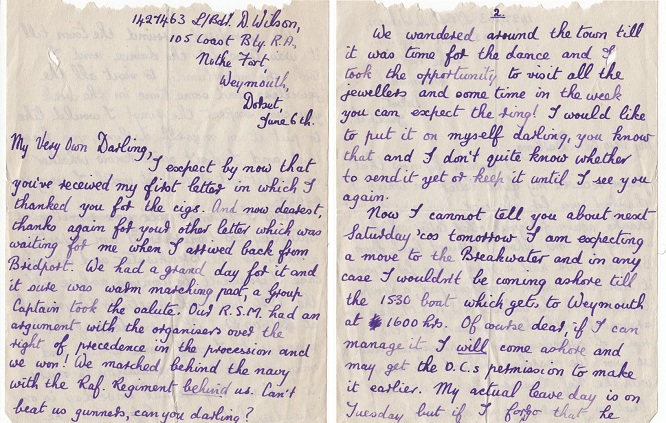 1427463 L/Bdr. D. Wilson,
105 Coast Bty. R.A.
Nothe Fort,
Weymouth,
Dorset.
June 6th.
My Very Own Darling,
I expect by now that
you've received my first letter in which I
thanked you for the cigs. And now dearest,
thanks again for your other letter which was
waiting for me when I arrived back from
Bridport. We had a grand day for it and
it sure was warm marching past, a Group
Captain took the salute. Our R.S.M. had an
argument with the organisers over the
right of precedence in the procession and
we won! We marched behind the navy
with the Raf. Regiment behind us. Can't
beat us gunners, can you darling?
2.
We wandered around the town till
it was time for the dance and I
took the opportunity to visit all the
jewellers and some time in the week
you can expect the ring! I would like
to put it on myself darling, you know
that and I don't quite know whether
to send it yet or keep it until I see you
again.
Now I cannot tell you about next
Saturday 'cos tomorrow I am expecting
a move to the Breakwater and in any
case I wouldn't be coming ashore till
the 1530 boat which gets to Weymouth
at 1600 hrs. Of course dear, if I can
manage it I will come ashore and
may get the O.C.s permission to make
it earlier. My actual leave day is on
Tuesday but if I forgo that he